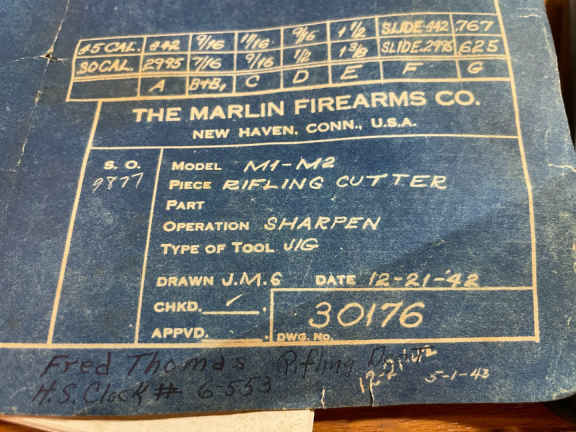 45 CAL. #42 9/16 11/16 9/16 1 1/2 SLIDE-442 .767
30 CAL. 2995 7/16 9/16 1/2 1 3/8 SLIDE-2995 .625
A B+B, C D E F G
THE MARLIN FIREARMS CO.
NEW HAVEN, CONN., U.S.A.
S. O.
9877
MODEL M1-M2
PIECE RIFLING CUTTER
PART
OPERATION SHARPEN
TYPE OF TOOL JIG
DRAWN J.M.G DATE 12-21-42
CHKD. ✓
APPVD.
DWG. NO. 30176
Fred Thomas Rifling
12-21-42
5-1-43
H.S. Clock # 6553